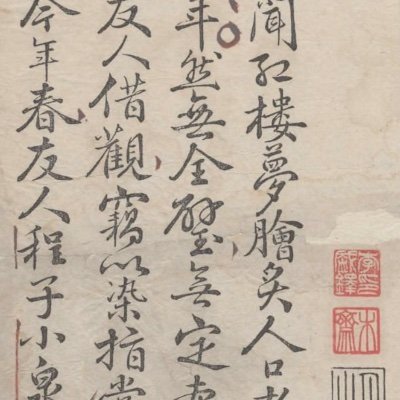 聞紅樓夢膾炙人口者
年然無全璧無定本
友人借觀竊以染指嘗
今年春友人程子小泉